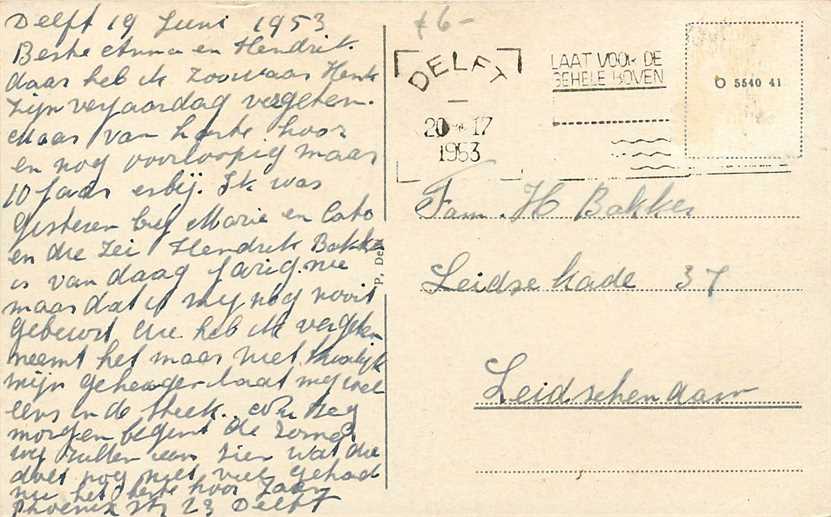 Delft 19 Juni 1953
Beste Anna en Hendrik.
daar heb ik zoowaar Henk
zijn verjaardag vergeten.
Maar van harte hoor
en nog voorloopig maar
10 Jaar erbij. Ik was
gisteren bij Marie en Cato
en die zei Hendrik Bakker
is van daag Jarig. nu
maar dat is mij nog nooit
gebeurt die heb ik vergeten
neemt het maar niet kwalijk
mijn geheugen laat mij wel
eens in de steek. Nu zeg
morgen begint de Zomer
wij zullen eens zien wat die
doet nog niet veel gehad
nu het beste hoor Zaan
Phoenix str 23 Delft
£6-
DELFT
20 17
1953
LAAT VOOR DE
GEHELE BOVEN
O 5540 41
P. De
Fam. H Bakker
Leidse kade 37
Leidschendam